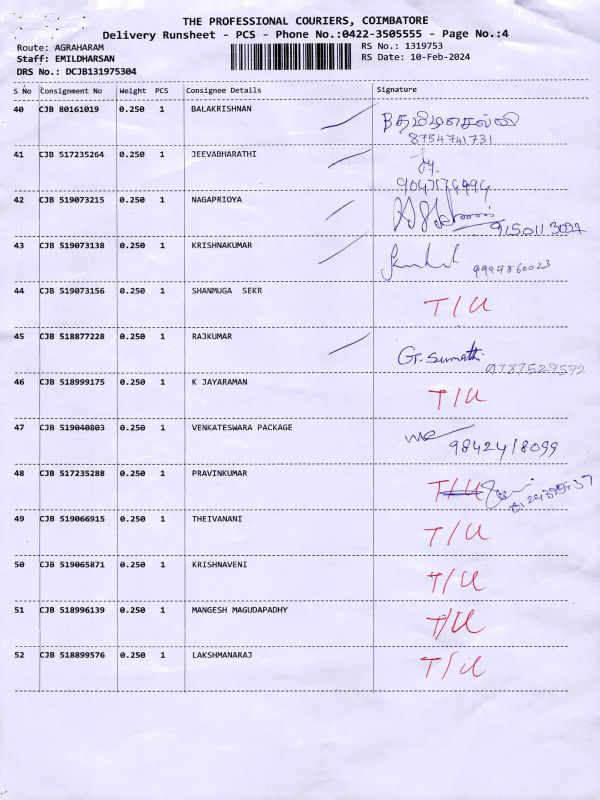 THE PROFESSIONAL COURIERS, COIMBATORE
Delivery Runsheet - PCS - Phone No.:0422-3505555 - Page No.:4
Route: AGRAHARAM
RS No.: 1319753
Staff: EMILDHARSAN
RS Date: 10-Feb-2024
DRS No.: DCJB131975304
S No Consignment No Weight PCS Consignee Details Signature
40 CJB 80161019 0.250 1 BALAKRISHNAN
8754741731
41 CJB 517235264 0.250 1 JEEVABHARATHI
42 CJB 519073215 0.250 1 NAGAPRIOYA
43 CJB 519073138 0.250 1 KRISHNAKUMAR
9994860023
44 CJB 519073156 0.250 1 SHANMUGA SEKR T/U
45 CJB 518877228 0.250 1 RAJKUMAR
G. Sumathi
46 CJB 518999175 0.250 1 K JAYARAMAN T/U
47 CJB 519040803 0.250 1 VENKATESWARA PACKAGE
9842418099
48 CJB 517235288 0.250 1 PRAVINKUMAR T/U
49 CJB 519066915 0.250 1 THEIVANANI T/U
50 CJB 519065871 0.250 1 KRISHNAVENI T/U
51 CJB 518996139 0.250 1 MANGESH MAGUDAPADHY T/U
52 CJB 518899576 0.250 1 LAKSHMANARAJ T/U